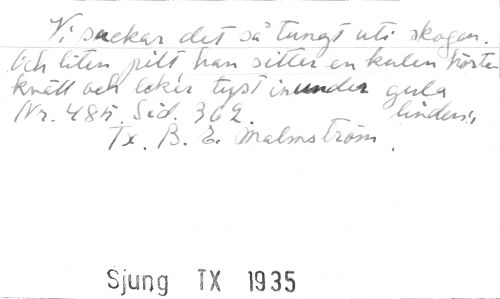 Vi suckar det så tungt uti skogen.
Och liten pilt han sitter en kulen hösten
kväll och leker tyst inunder gula
Nr. 485. Sid. 362. linden",
Tx. B. E. Malmström.
Sjung TX 1935